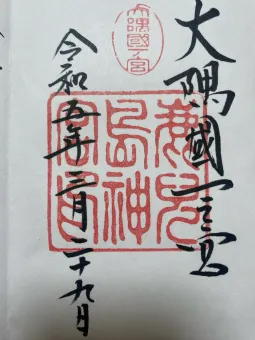 大隅國一之宮
大隅國一ノ宮
鹿兒
島神
令和五年三月二十九日